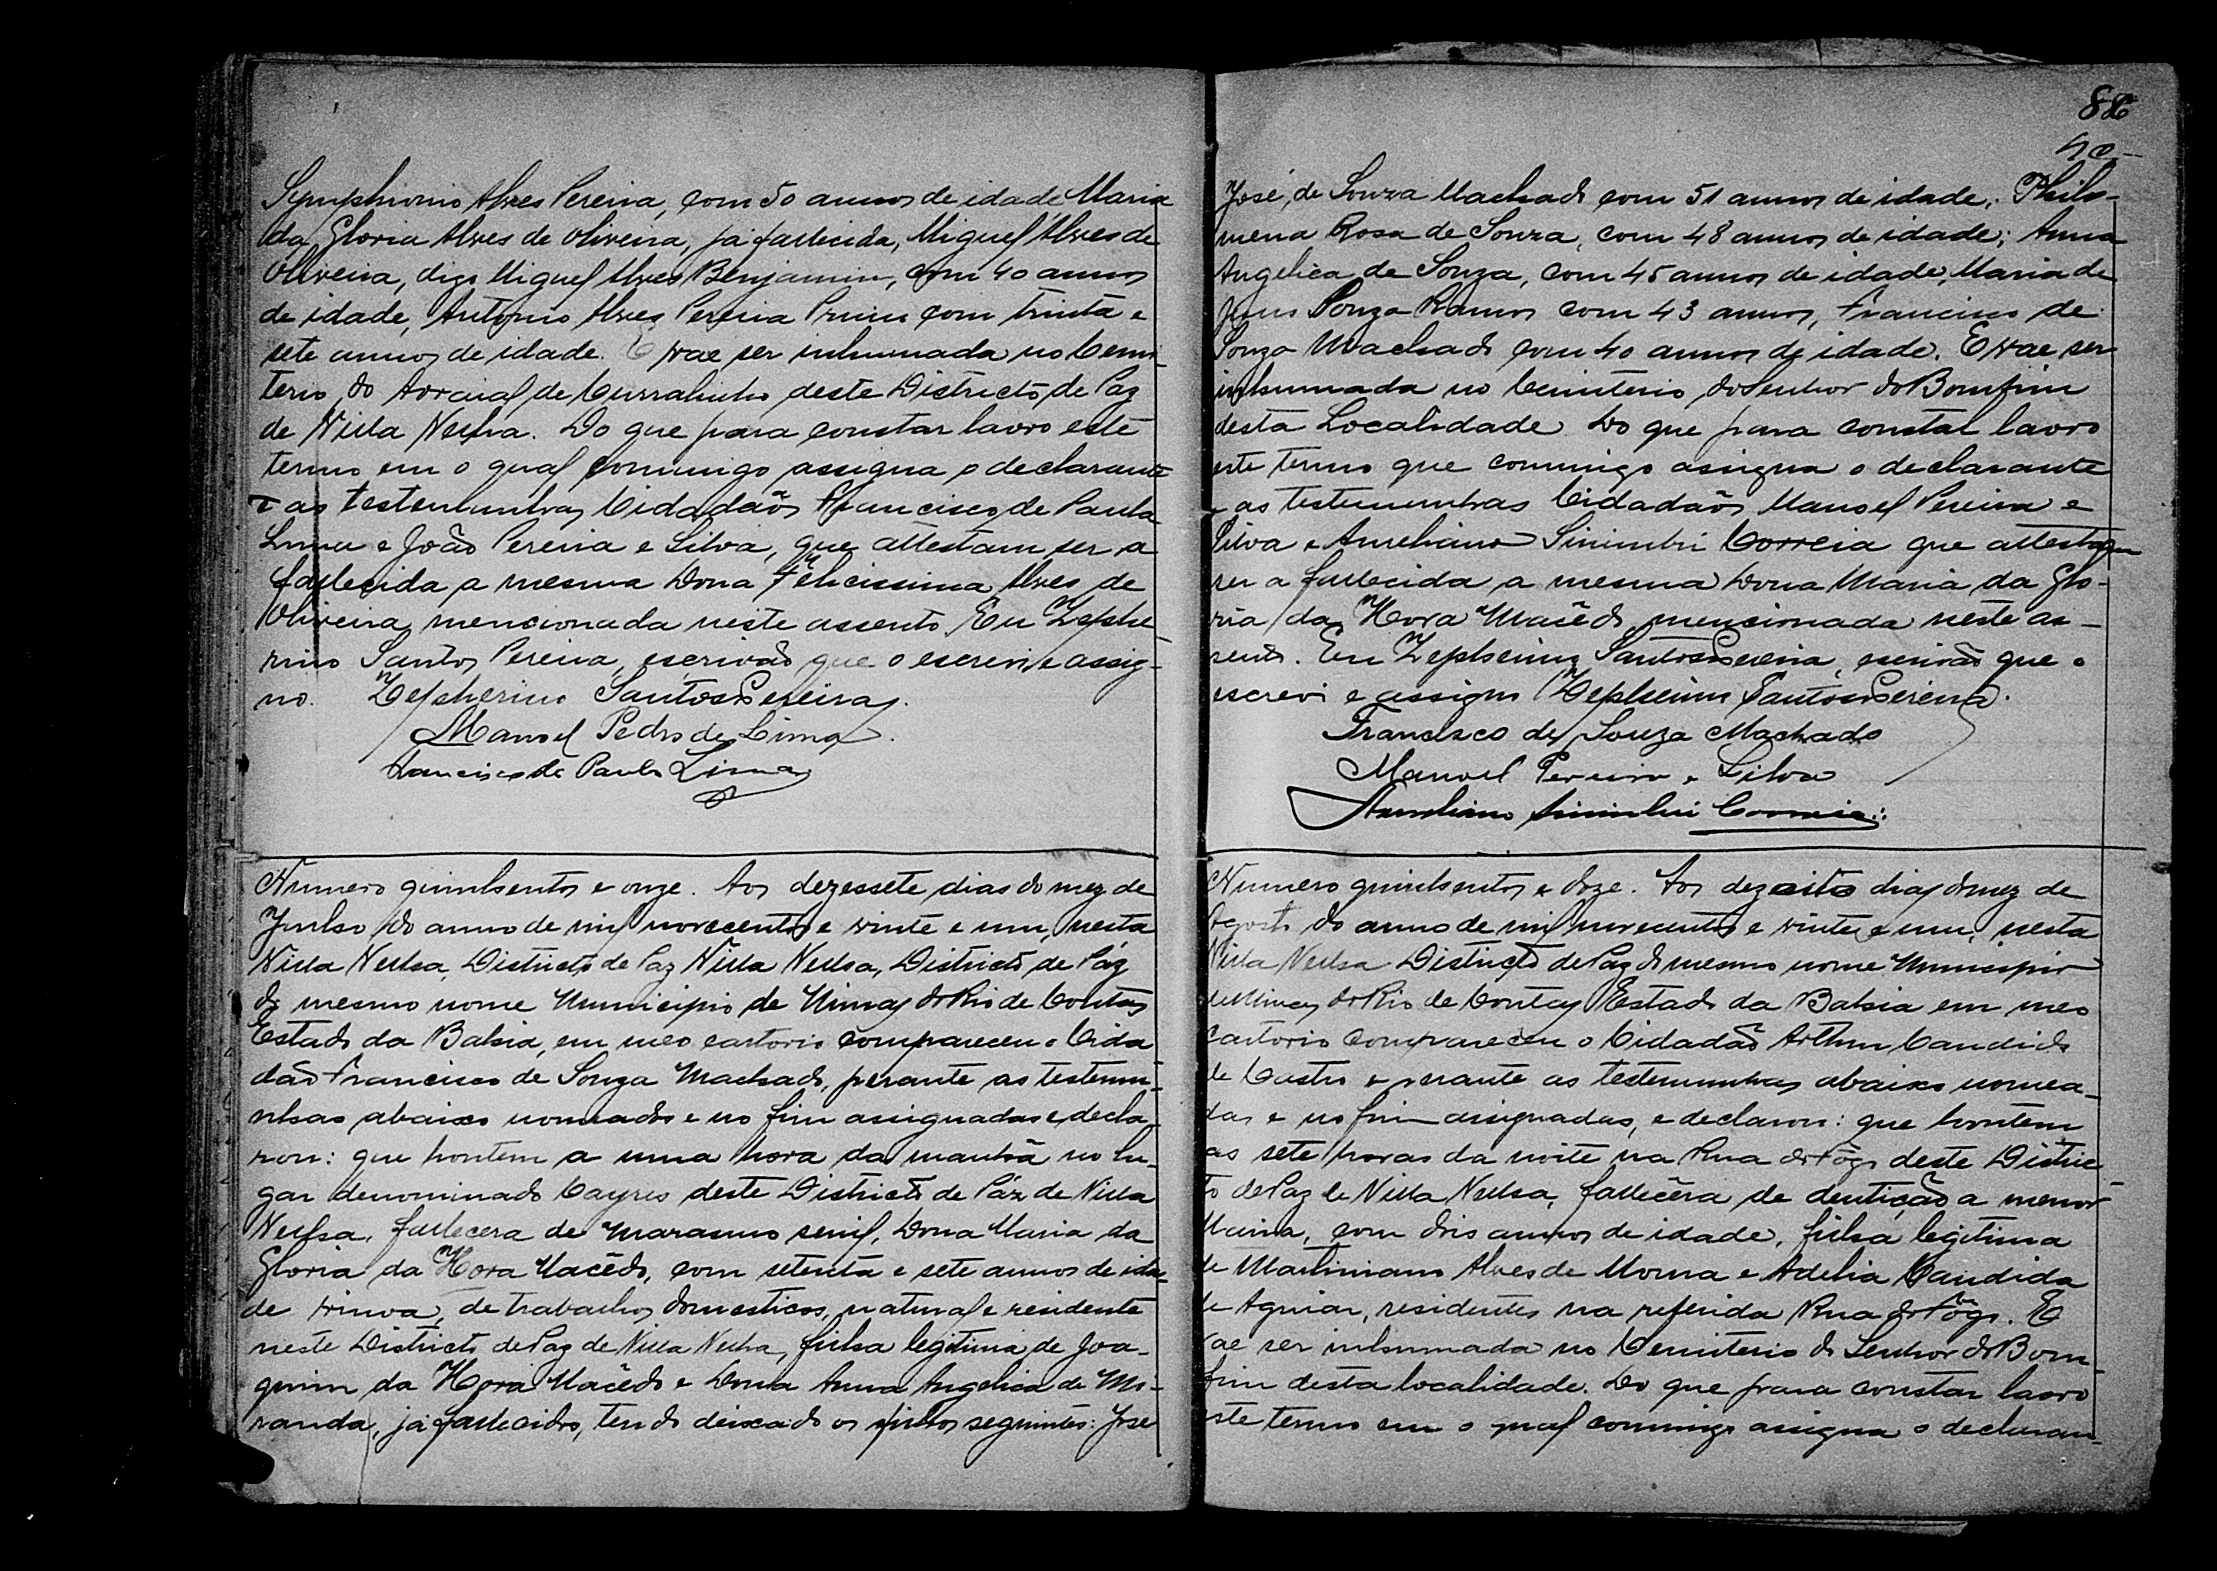 Symphronio Alves Pereira, com 50 annos de idade, Maria
da Gloria Alves de Oliveira, já fallecida, Miguel Alves de
Oliveira, digo Miguel Alves Benjamim, com 40 annos
de idade, Antonio Alves Pereira Primo com trinta e
sete annos de idade. E vae ser inhumada no Cemi-
terio do Arraial de Curralinho deste Districto de Paz
de Villa Velha. Do que para constar lavro este
termo em o qual commigo assigna o declarante
e as testemunhas Cidadãos Francisco de Paula
Lima e João Pereira e Silva, que attestam ser a
fallecida a mesma Dona Felicissima Alves de
Oliveira mencionada neste assento. Eu Zephe-
rino Santos Pereira, escrivão que o escrevi e assig-
no. Zepherino Santos Pereira.
Manoel Pedro de Lima.
Francisco de Paula Lima
Numero quinhentos e onze. Aos dezessete dias do mez de
Julho do anno de mil novecentos e vinte e um, nesta
Villa Velha, Districto de Paz Villa Velha, Districto de Paz
do mesmo nome Municipio de Minas do Rio de Contas
Estado da Bahia, em meo cartorio compareceu o Cida-
dão Francisco de Souza Machado, perante as testemu-
nhas abaixo nomeados e no fim assignadas e decla-
rou: que hontem a uma hora da manhã no lu-
gar denominado Cayres deste Districto de Páz de Villa
Velha, fallecera de marasmo senil, Dona Maria da
Gloria da Hora Macêdo, com setenta e sete annos de ida-
de viuva, de trabalhos domesticos, natural e residente
neste Districto de Paz de Villa Velha, filha legitima de Joa-
quim da Hora Macêdo e Dona Anna Angelica de Mi-
randa, já fallecidos, tendo deixado os filhos seguintes: José
86
José, de Souza Machado com 51 annos de idade, Philo-
mena Rosa de Souza, com 48 annos de idade; Anna
Angelica de Souza, com 45 annos de idade, Maria de
Jesus Souza Ramos com 43 annos, Francisco de
Souza Machado com 40 annos de idade. E vae ser
inhumada no Cemiterio do Senhor do Bomfim
desta Localidade. Do que para constar lavro
este termo que commigo assigna o declarante
e as testemunhas Cidadãos Manoel Pereira e
Silva e Aureliano Sinimbú Correia que attestam
ser a fallecida a mesma Dona Maria da Glo-
ria da Hora Macêdo mencionada neste as-
sento. Eu Zepherino Santos Pereira, escrivão que o
escrevi e assigno Zepherino Santos Pereira.
Francisco de Souza Machado
Manoel Pereira e Silva
Aureliano Sinimbú Correia
Numero quinhentos e doze. Aos dezoito dias do mez de
Agosto do anno de mil novecentos e vinte e um, nesta
Villa Velha Districto de Paz do mesmo nome Municipio
de Minas do Rio de Contas Estado da Bahia em meo
cartorio compareceu o Cidadão Arthur Candido
de Castro e perante as testemunhas abaixo nomea-
das e no fim assignadas, e declarou: que hontem
as sete horas da noite na Rua do Fôgo deste Distric-
to de Paz de Villa Velha, fallecêra de dentição a menor
Maria, com dois annos de idade, filha legitima
de Martiniano Alves de Moura e Adelia Candida
de Aguiar, residentes na referida Rua do Fôgo. E
vae ser inhumada no Cemiterio do Senhor do Bom-
fim desta localidade. Do que para constar lavro
este termo em o qual commigo assigna o declaran-